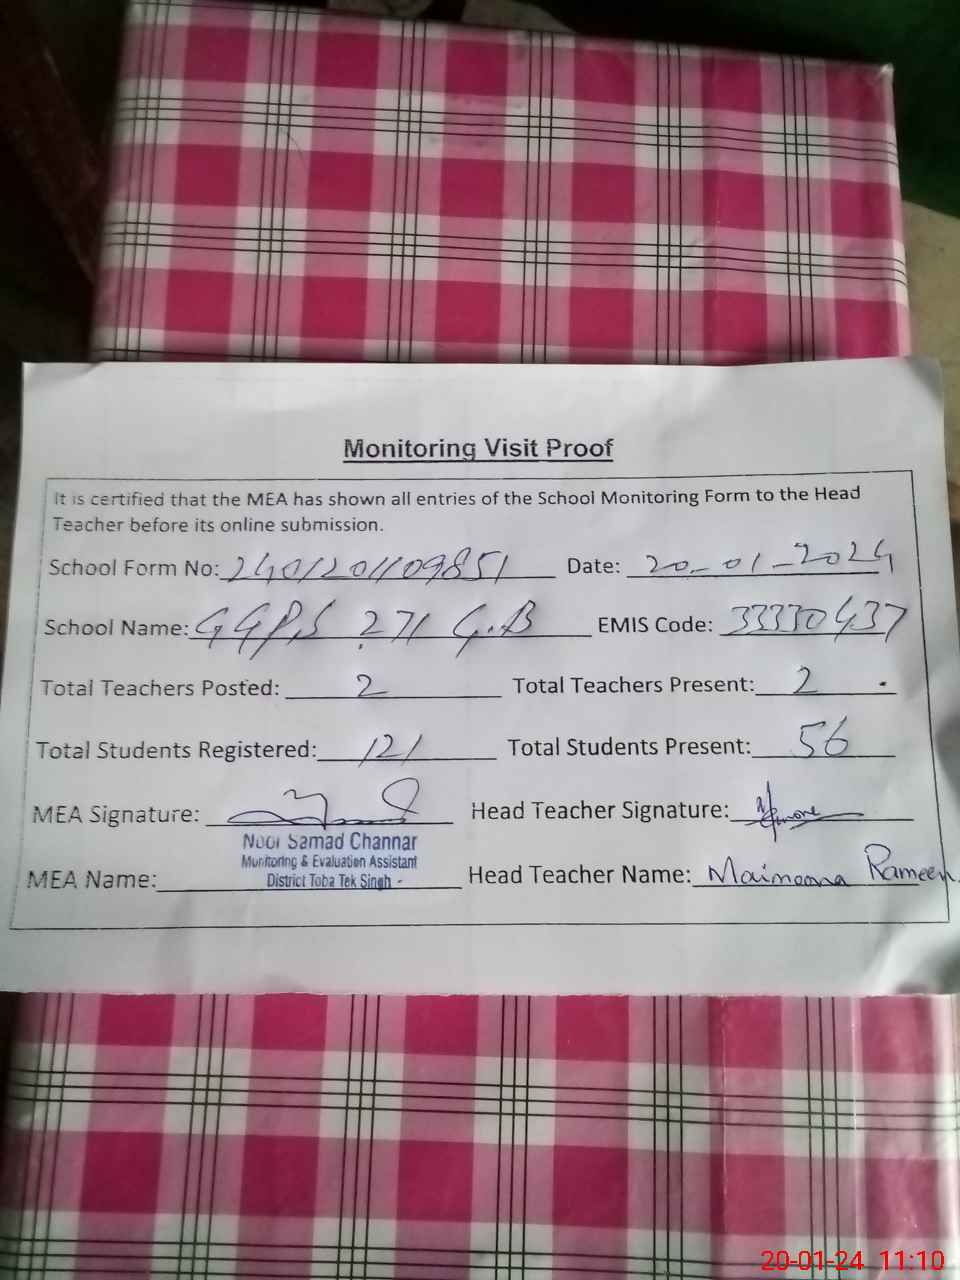 Monitoring Visit Proof
It is certified that the MEA has shown all entries of the School Monitoring Form to the Head
Teacher before its online submission.
School Form No: 240120109851 Date: 20-01-2024
School Name: GGPS 271 G.B EMIS Code: 33330437
Total Teachers Posted: 2 Total Teachers Present: 2
Total Students Registered: 121 Total Students Present: 56
MEA Signature: Head Teacher Signature:
Noor Samad Channar
Monitoring & Evaluation Assistant
District Toba Tek Singh -
MEA Name: Head Teacher Name: Maimoona Rameen
20-01-24 11:10